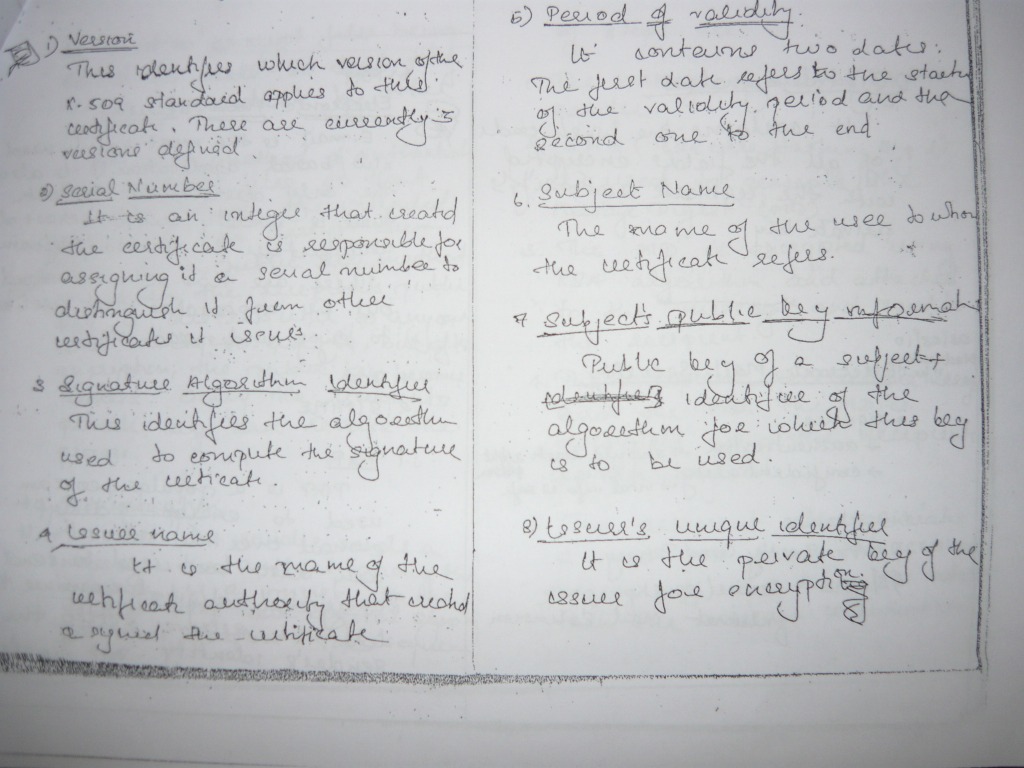 1) Version
This identifies which version of the
X.509 standard applies to this
certificate. There are currently 3
versions defined.
2) Serial Number
It is an integer that created
the certificate is responsible for
assigning it a serial number to
distinguish it from other
certificates it issues.
3 Signature Algorithm Identifier
This identifies the algorithm
used to compute the signature
of the certicate.
4 Issuer name
It is the name of the
certificate authority that created
& signed the certificate
5) Period of validity
It contains two dates.
The first date refers to the start
of the validity period and the
second one to the end
6. Subject Name
The name of the user to whom
the certificate refers.
7 Subject's public key informati
Public key of a subject +
identifier of the
algorithm for which this key
is to be used.
8) Issuer's unique identifier
It is the private key of the
issuer for encryption